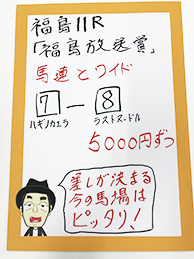 福島11R
「福島放送賞」
馬連とワイド
7 ー 8
ハギノカエラ ラストヌードル
5000円ずつ
差しが決まる
今の馬場は
ピッタリ!